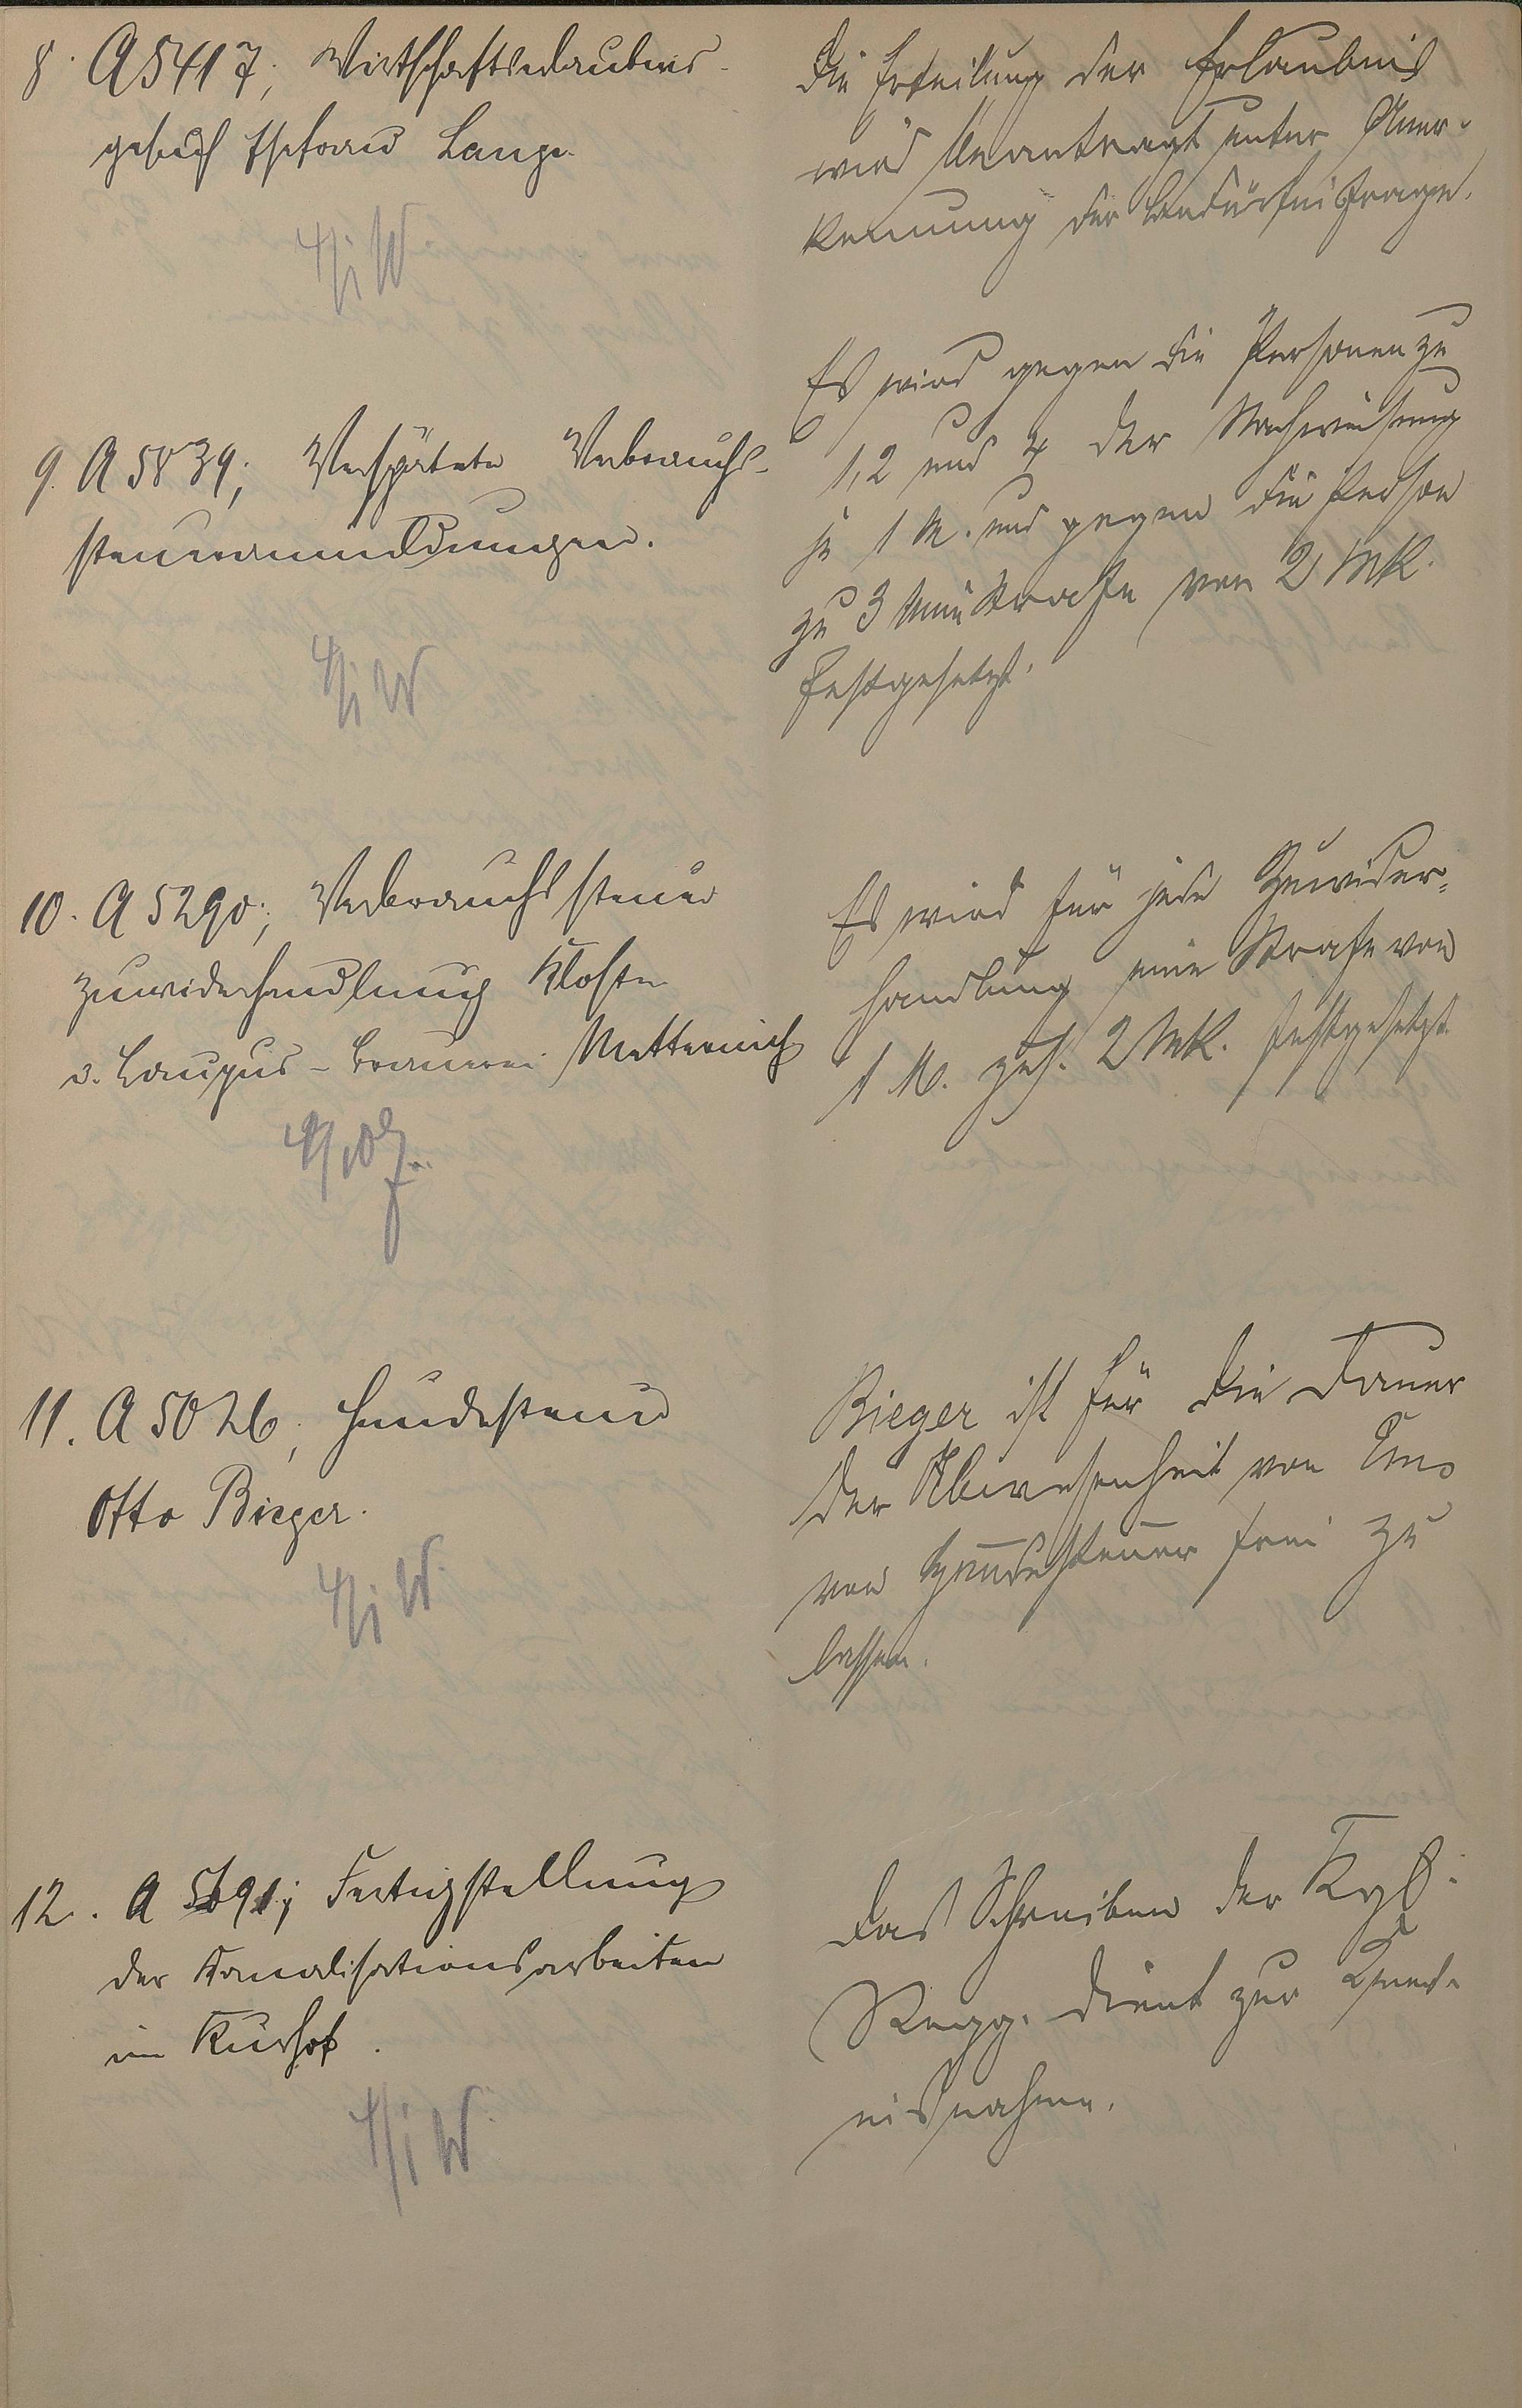 8. A 5417; Wirtschaftserlaubnis-
gesuch Ehefrau Lange
4/i W
Die Erteilung der Erlaubnis
wird beantragt unter Aner-
kennung der Bedürfnisfrage.
9. A 5839; Verspätete Verbrauchs-
steueranmeldungen.
4/i W
Es wird gegen die Personen zu
1, 2 und 4 der Nachweisung
je 1 M. und gegen die Person
zu 3 eine Strafe von 2 Mk.
festgesetzt.
10. A 5290; Verbrauchssteuer
zuwiderhandlung Kloster
Brauerei Metternich
Es wird für jede Zuwider-
handlung eine Strafe von
1 M. zus. 2 Mk. festgesetzt
11. A 5026; Hundesteuer
Otto Bieger.
4/i W.
Bieger ist für die Dauer
der Abwesenheit von Ems
von Hundesteuer frei zu
lassen.
12. A 5691; Fertigstellung
der Kanalisationsarbeiten
im Kurhof.
4/i W.
Das Schreiben der Kgl.
Regg. dient zur Kennt-
nisnahme.